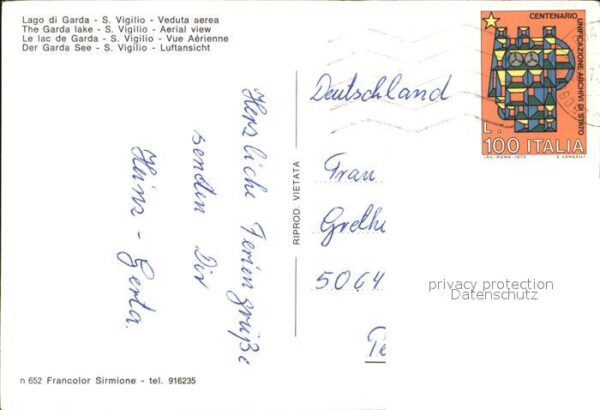 Lago di Garda - S. Vigilio - Veduta aerea
The Garda lake - S. Vigilio - Aerial view
Le lac de Garda - S. Vigilio - Vue Aérienne
Der Garda See - S. Vigilio - Luftansicht
Herzliche Feriengrüße
senden Dir
Heinz - Gerta.
n 652 Francolor Sirmione - tel. 916235
RIPROD. VIETATA
CENTENARIO
UNIFICAZIONE ARCHIVI DI STATO
L.
100 ITALIA
I.P.S.-ROMA-1975 E. VANGELLI
Deutschland
Frau
Grethe
5064
privacy protection
Datenschutz